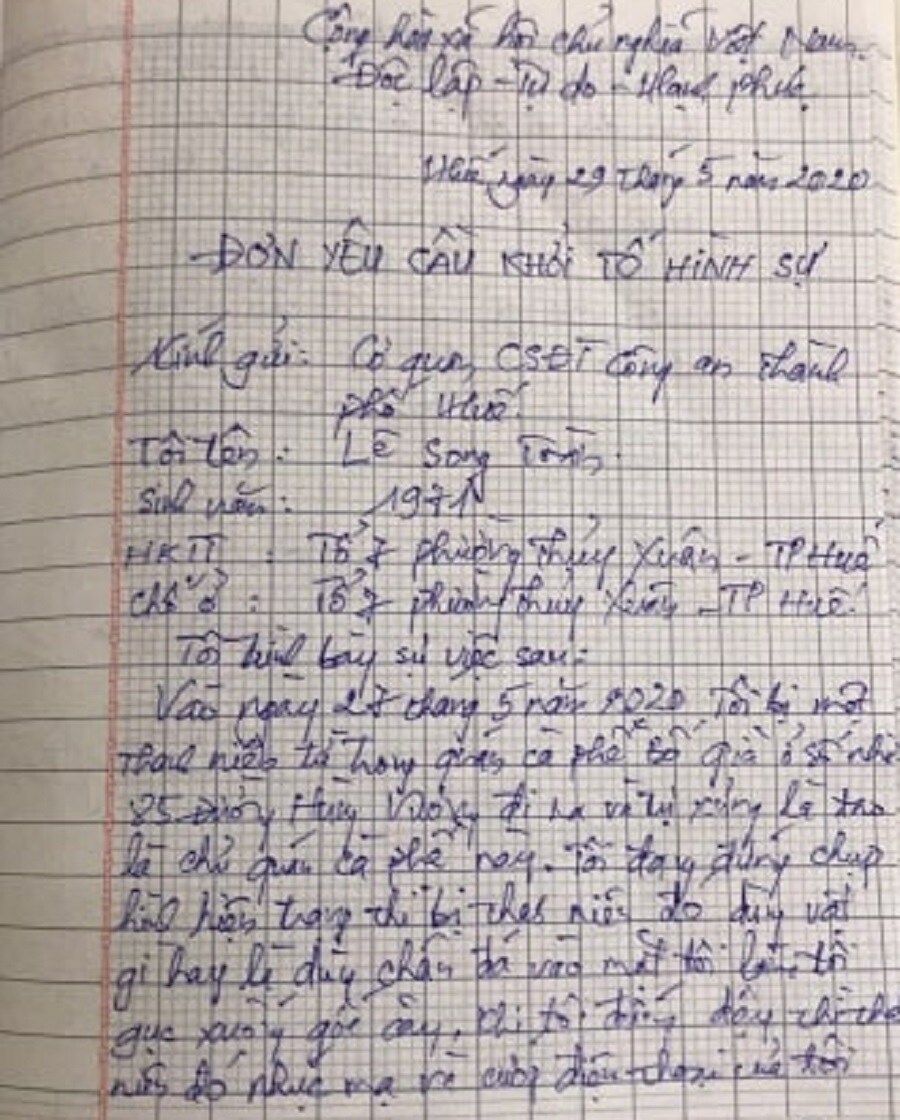 Cộng hòa xã hội chủ nghĩa Việt Nam
Độc lập - Tự do - Hạnh phúc
Huế ngày 29 tháng 5 năm 2020
ĐƠN YÊU CẦU KHỞI TỐ HÌNH SỰ
Kính gửi: Cơ quan CSĐT Công an thành
phố Huế.
Tôi tên: Lê Song
Sinh năm: 1971
HKTT : Tổ 7 phường Thủy Xuân - TP Huế
chỗ ở : Tổ 7 phường Thủy Xuân - TP Huế.
Tôi trình bày sự việc sau:
Vào ngày 27 tháng 5 năm 2020 Tôi bị một
thanh niên từ trong quán cà phê Bố già ở số nhà
85 Đường Hùng Vương đi ra và tự xưng là tao
là chủ quán cà phê này. Tôi đang đứng chụp
hình hiện trạng thì bị thanh niên đó dùng vật
gì hay là dùng chân đá vào mặt tôi làm tôi
gục xuống gốc cây, khi tôi đứng dậy thì thanh
niên đó nhục mạ và cướp điện thoại của tôi